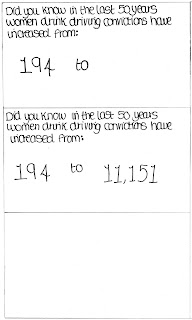 Did you know in the last 50 years
women drunk driving convictions have
increased from:
194 to
Did you know in the last 50 years
women drunk driving convictions have
increased from:
194 to 11,151